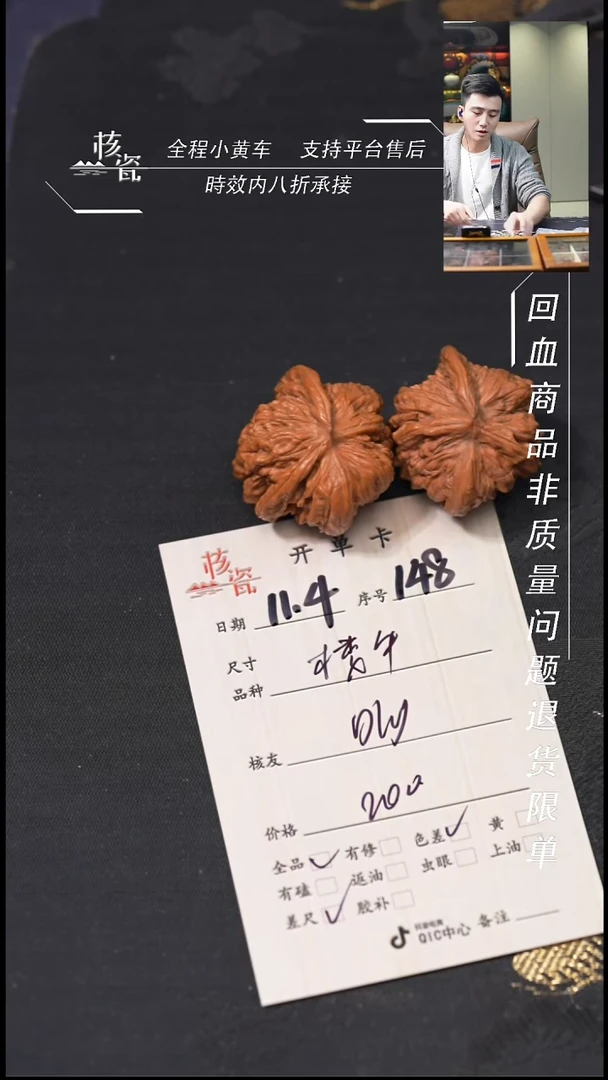 核瓷
全程小黄车 支持平台售后
時效内八折承接
回血商品非质量问题退货限单
核瓷 开单卡
日期 11.4 序号 148
尺寸
品种
核友
价格 200
全品 有修 色差 黄
有磕 返油 虫眼 上油
差尺 胶补
抖音电商
QIC中心 备注